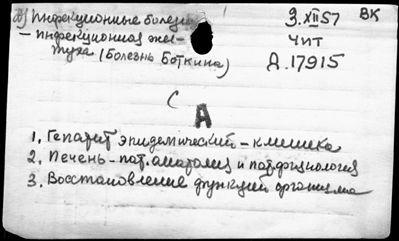 Инфекционные болезни 3.XII57 ВК
– инфекционная жел- Чит
туха (Болезнь Боткина) Д.17915
С
А
1. Гепатит эпидемический – клиника
2. Печень – пат.анатомия и патфизиология
3. Восстановление функций организма